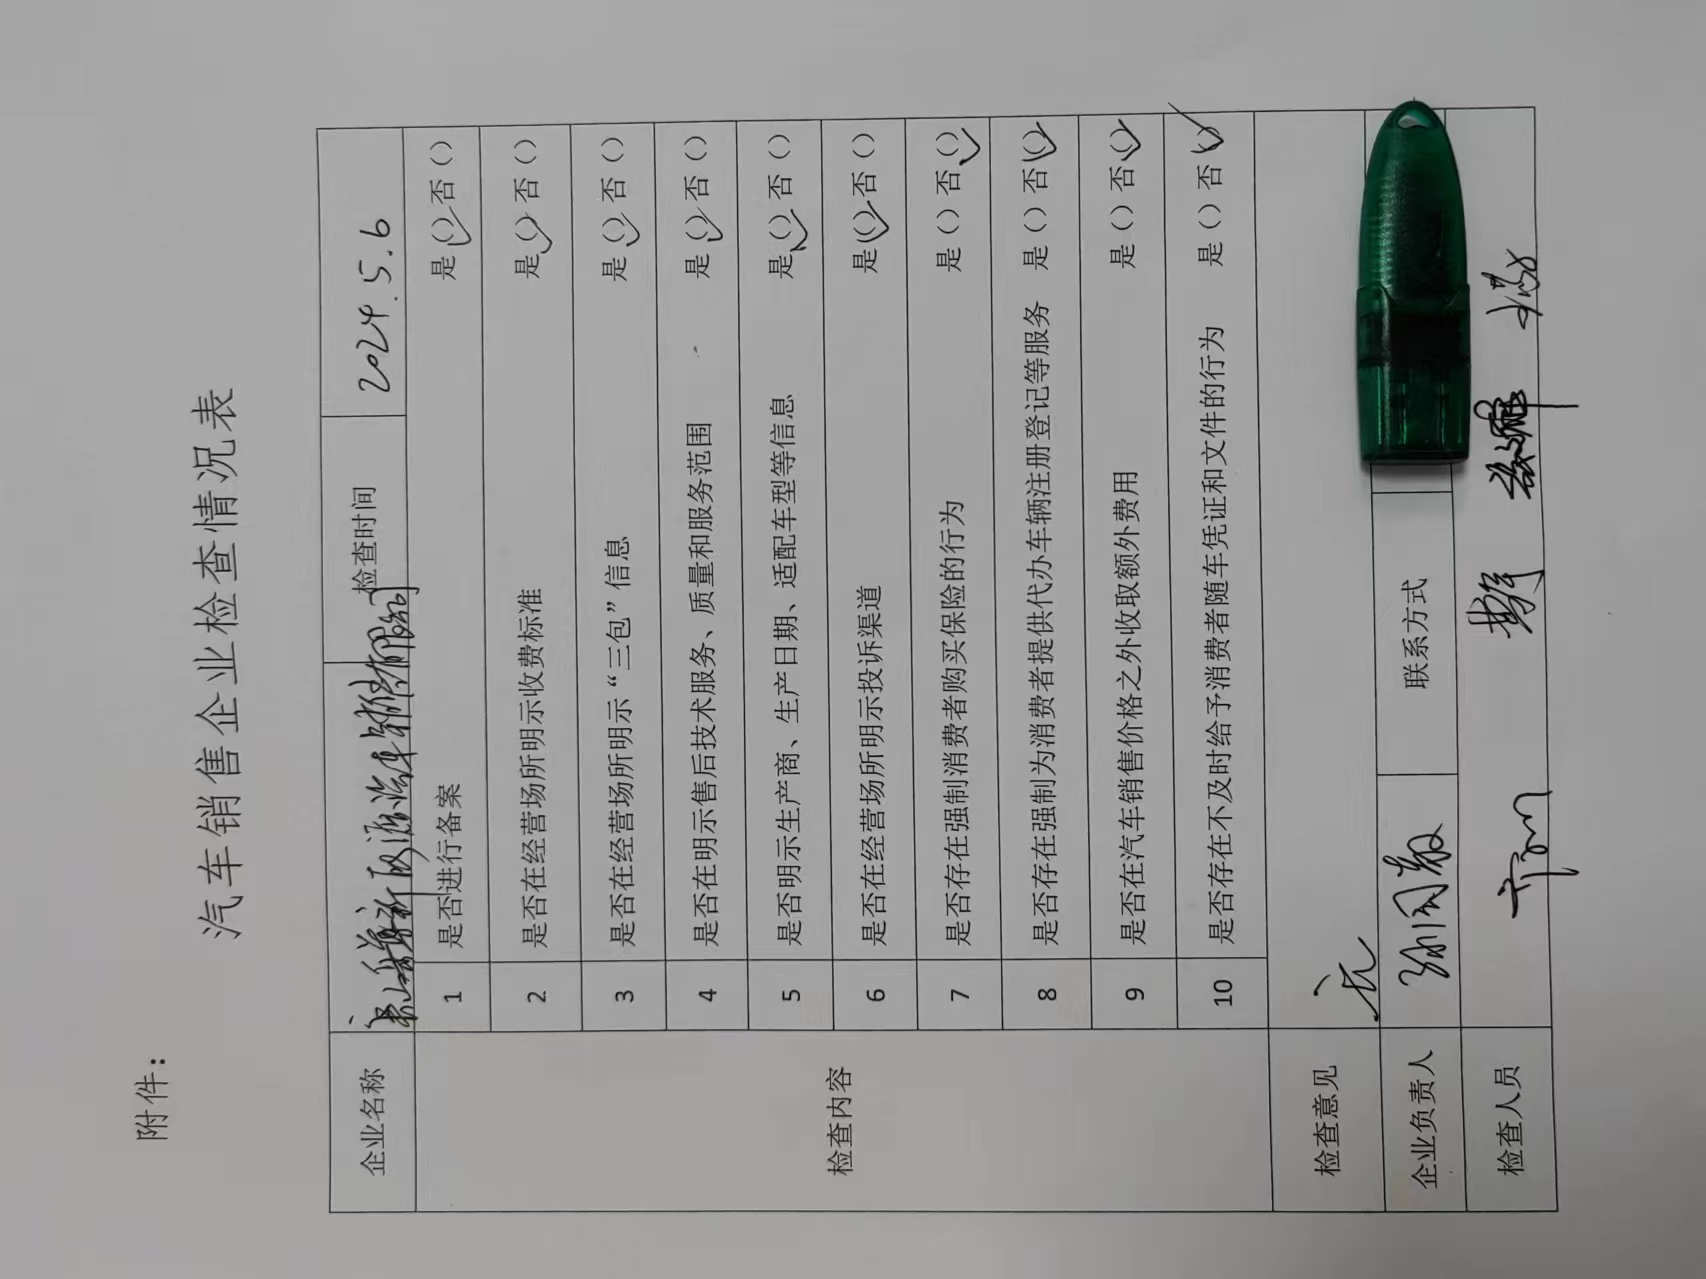 附件：
汽车销售企业检查情况表
企业名称 检查时间 2024.5.6
检查内容
1 是否进行备案 是（✓）否（）
2 是否在经营场所明示收费标准 是（✓）否（）
3 是否在经营场所明示“三包”信息 是（✓）否（）
4 是否在明示售后技术服务、质量和服务范围 是（✓）否（）
5 是否明示生产商、生产日期、适配车型等信息 是（✓）否（）
6 是否在经营场所明示投诉渠道 是（✓）否（）
7 是否存在强制消费者购买保险的行为 是（）否（✓）
8 是否存在强制为消费者提供代办车辆注册登记等服务 是（）否（✓）
9 是否在汽车销售价格之外收取额外费用 是（）否（✓）
10 是否存在不及时给予消费者随车凭证和文件的行为 是（）否（✓）
检查意见
企业负责人 联系方式
检查人员